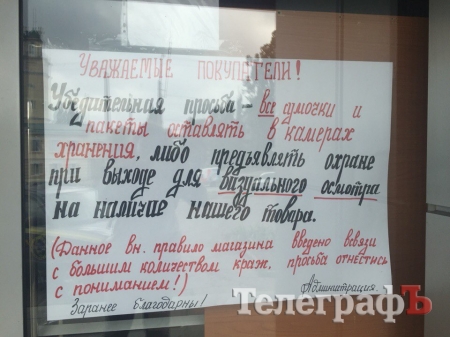 Уважаемые покупатели!
Убедительная просьба - все сумочки и
пакеты оставлять в камерах
хранения, либо предъявлять охране
при выходе для визуального осмотра
на наличие нашего товара.
(Данное вн. правило магазина введено всвязи
с большим количеством краж, просьба отнестись
с пониманием!)
Заранее благодарны!
Администрация.
ТелеграфЪ